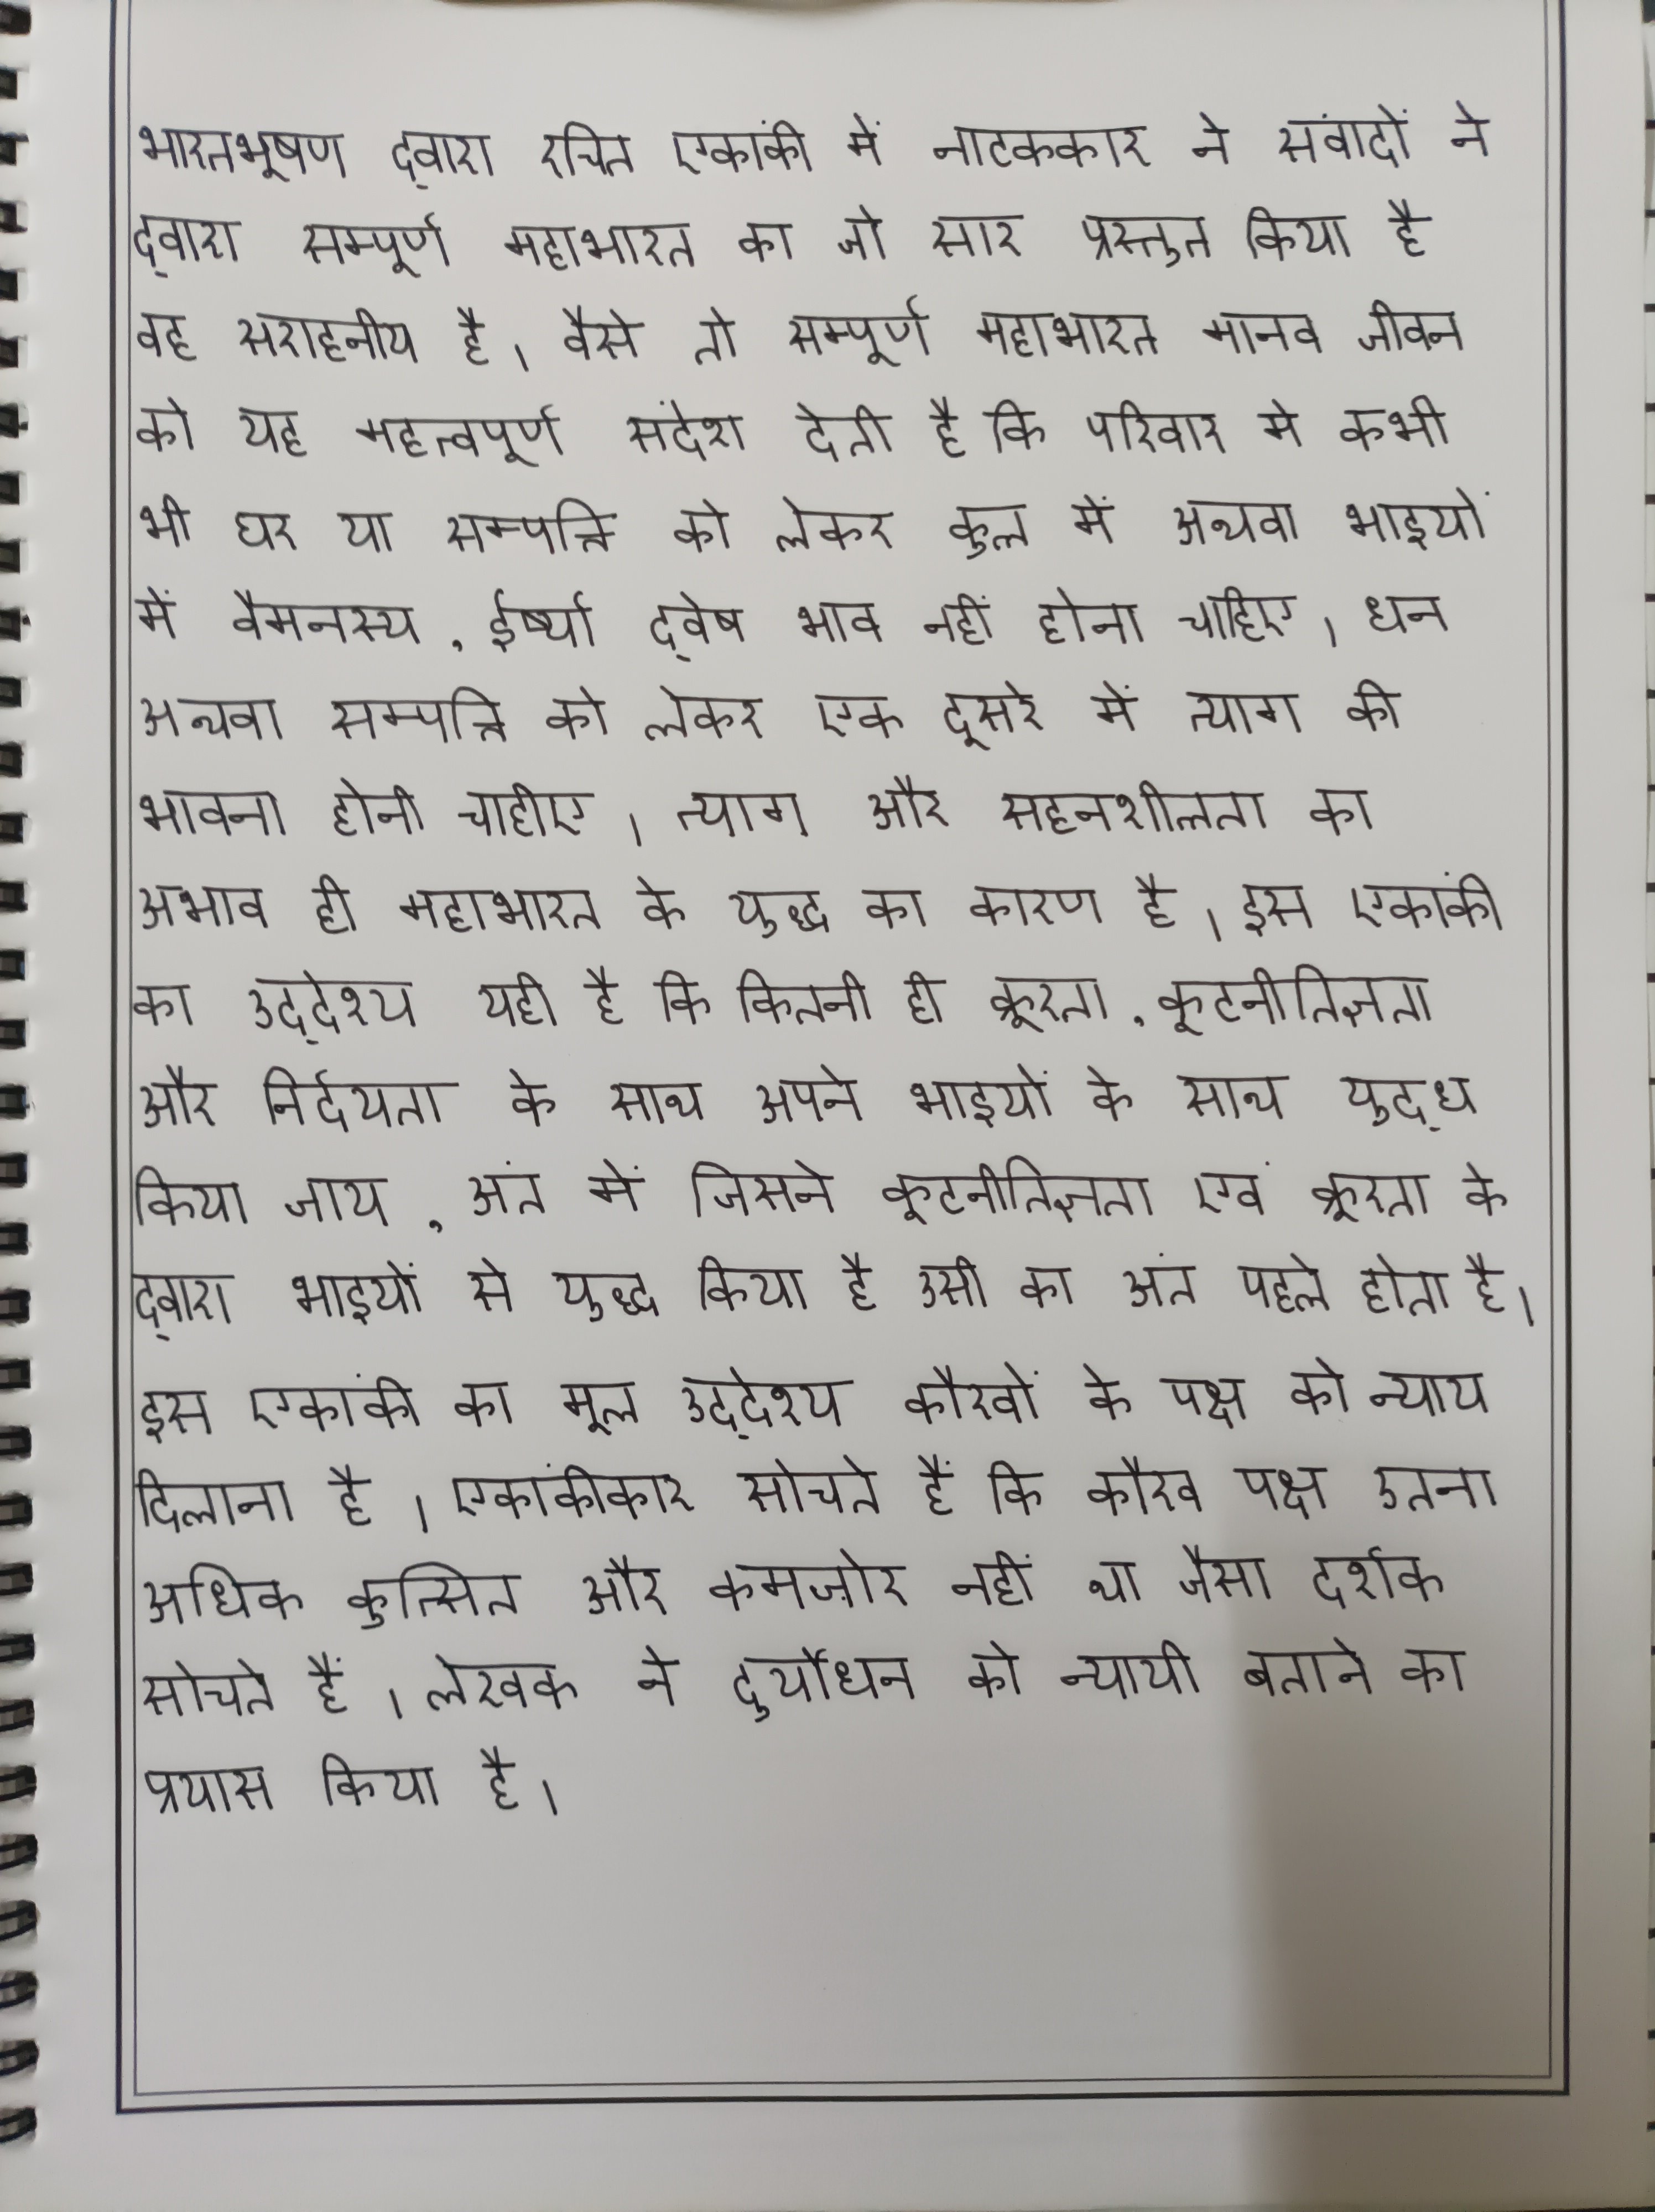 भारतभूषण द्‌वारा रचित एकांकी में नाटककार ने संवादों ने
द्‌वारा सम्पूर्ण महाभारत का जो सार प्रस्तुत किया है
वह सराहनीय है। वैसे तो सम्पूर्ण महाभारत मानव जीवन
को यह महत्त्वपूर्ण संदेश देती है कि परिवार मे कभी
भी घर या सम्पत्ति को लेकर कुल में अथवा भाइयों
में वैमनस्य, ईर्ष्या द्‌वेष भाव नहीं होना चाहिए। धन
अथवा सम्पत्ति को लेकर एक दूसरे में त्याग की
भावना होनी चाहीए। त्याग और सहनशीलता का
अभाव ही महाभारत के युद्ध का कारण है। इस एकांकी
का उद्‌देश्य यही है कि कितनी ही क्रूरता, कूटनीतिज्ञता
और निर्दयता के साथ अपने भाइयों के साथ युद्‌ध
किया जाय, अंत में जिसने कूटनीतिज्ञता एवं क्रूरता के
द्‌वारा भाइयों से युद्ध किया है उसी का अंत पहले होता है।
इस एकांकी का मूल उद्‌देश्य कौरवों के पक्ष को न्याय
दिलाना है। एकांकीकार सोचते हैं कि कौरव पक्ष उतना
अधिक कुत्सित और कमज़ोर नहीं था जैसा दर्शक
सोचते हैं। लेखक ने दुर्योधन को न्यायी बताने का
प्रयास किया है।